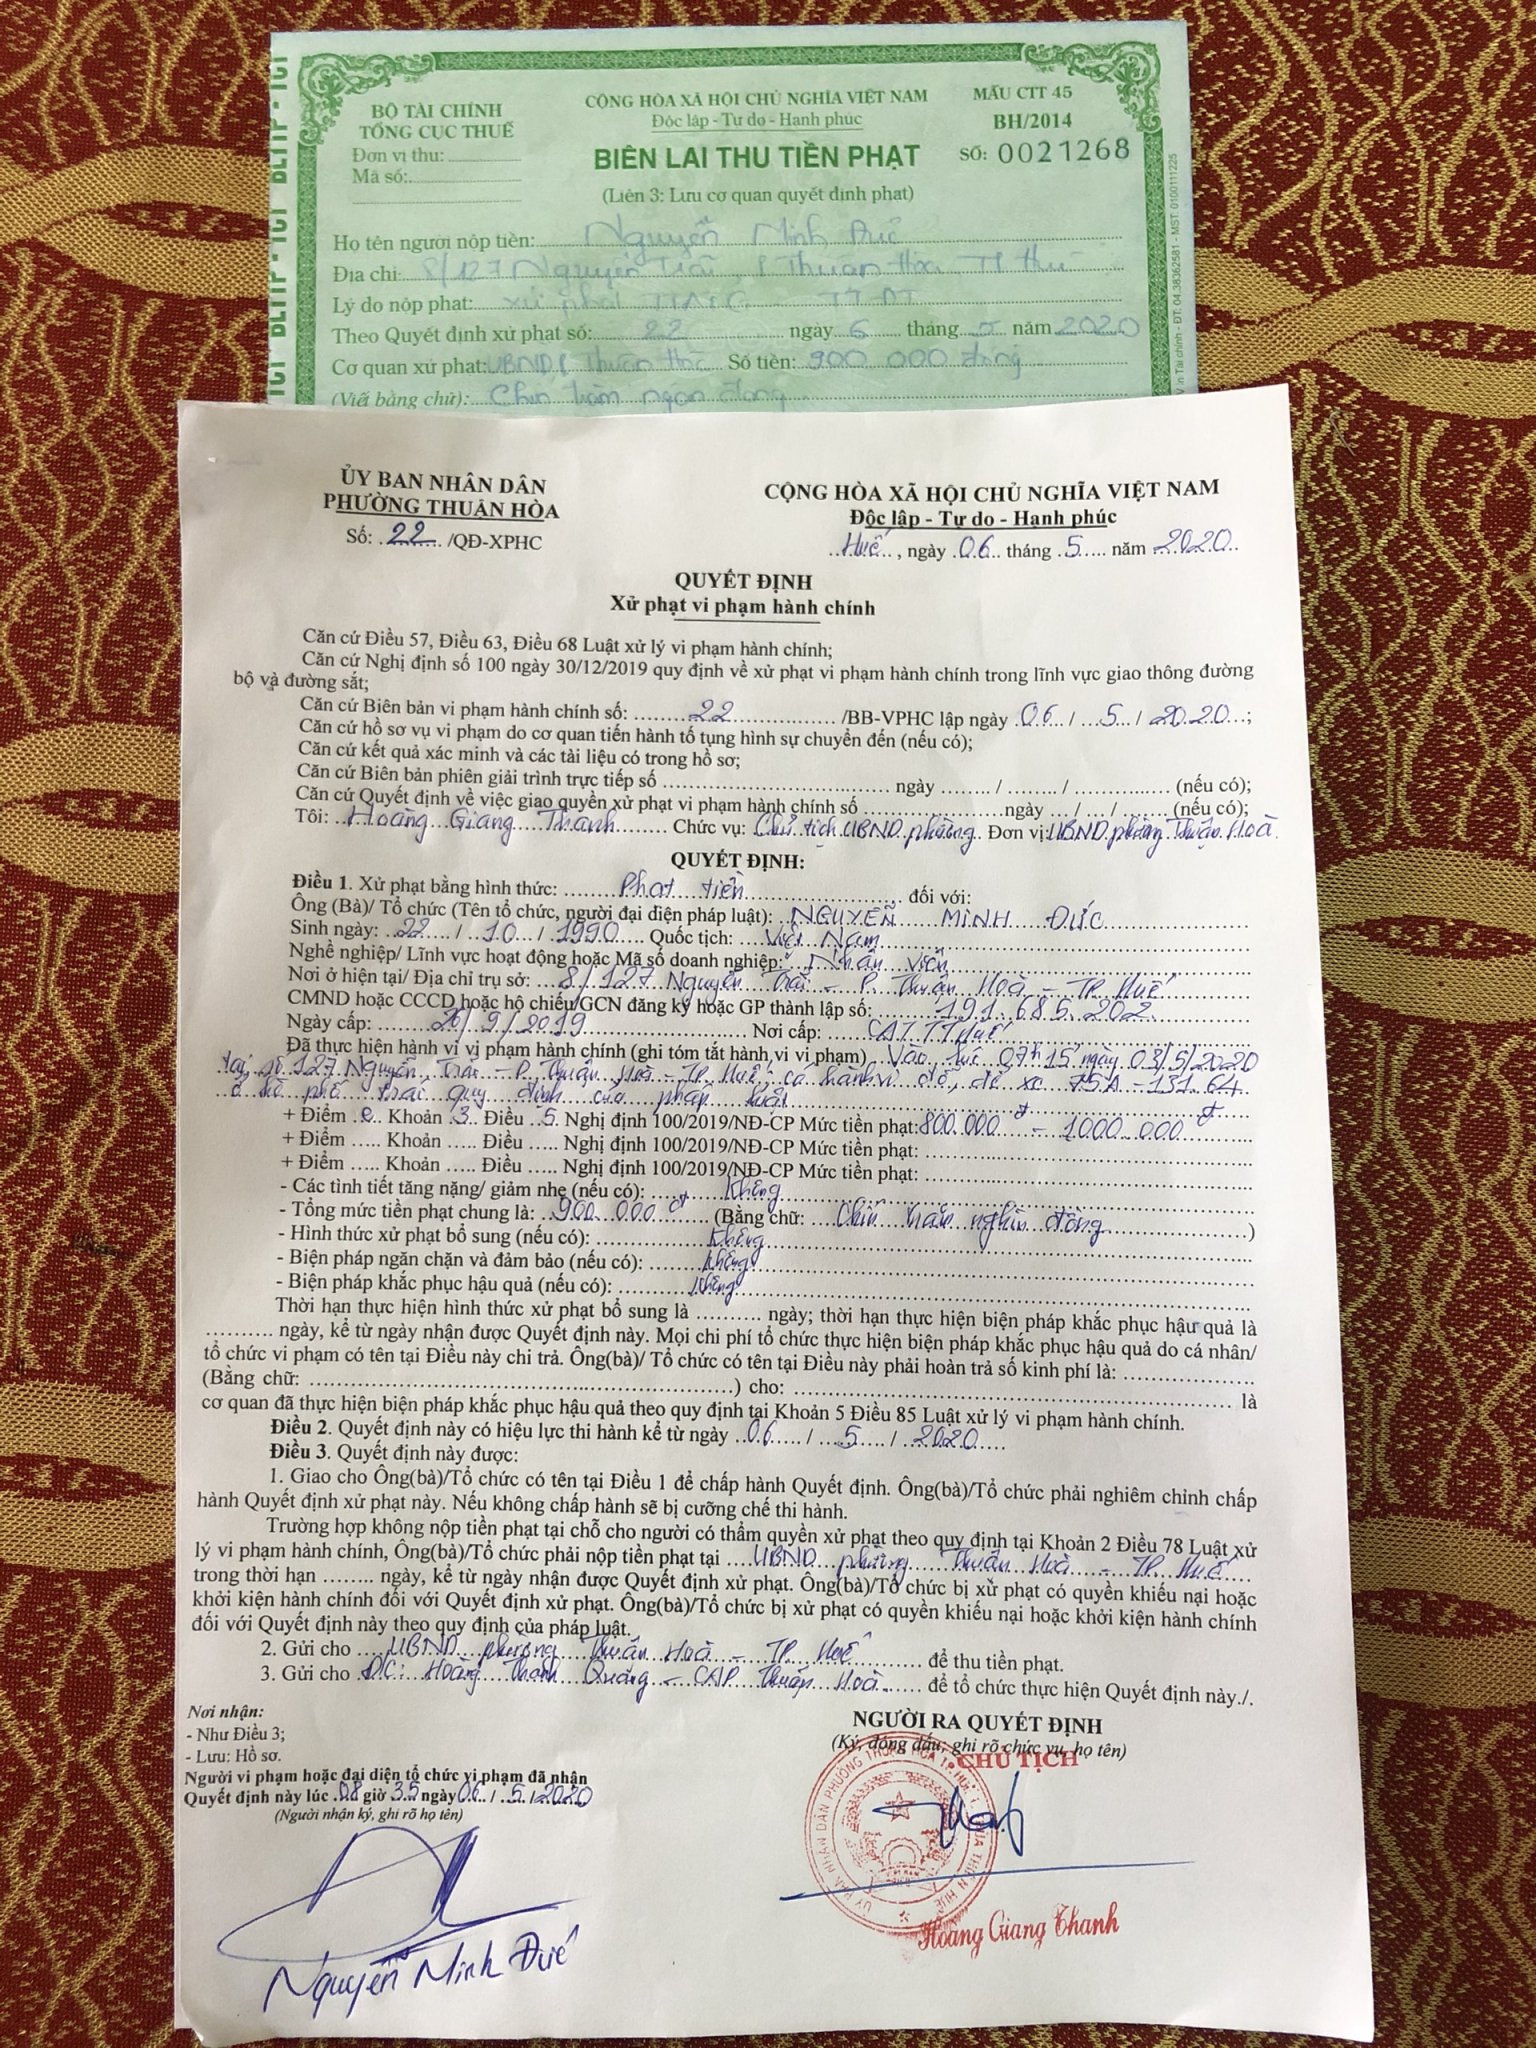 BỘ TÀI CHÍNH
TỔNG CỤC THUẾ
Đơn vị thu:
Mã số:
CỘNG HÒA XÃ HỘI CHỦ NGHĨA VIỆT NAM
Độc lập - Tự do - Hạnh phúc
BIÊN LAI THU TIỀN PHẠT
(Liên 3: Lưu cơ quan quyết định phạt)
MẪU CTT 45
BH/2014
SỐ: 0021268
Họ tên người nộp tiền: Nguyễn Minh Đức
Địa chỉ: 8/127 Nguyễn Trãi, P Thuận Hòa, TP Huế
Lý do nộp phạt: xử phạt TTĐT
Theo Quyết định xử phạt số: 22 ngày 6 tháng 5 năm 2020
Cơ quan xử phạt: UBND P Thuận Hoà Số tiền: 900 000 đồng
(Viết bằng chữ): Chín trăm ngàn đồng
BLTTP - TCT
In Tài chính - ĐT: 04.38362581 - MST: 0100111225
ỦY BAN NHÂN DÂN
PHƯỜNG THUẬN HÒA
Số: 22 /QĐ-XPHC
CỘNG HÒA XÃ HỘI CHỦ NGHĨA VIỆT NAM
Độc lập - Tự do - Hạnh phúc
Huế, ngày 06 tháng 5 năm 2020
QUYẾT ĐỊNH
Xử phạt vi phạm hành chính
Căn cứ Điều 57, Điều 63, Điều 68 Luật xử lý vi phạm hành chính;
Căn cứ Nghị định số 100 ngày 30/12/2019 quy định về xử phạt vi phạm hành chính trong lĩnh vực giao thông đường
bộ và đường sắt;
Căn cứ Biên bản vi phạm hành chính số: 22 /BB-VPHC lập ngày 06 / 5 / 2020;
Căn cứ hồ sơ vụ vi phạm do cơ quan tiến hành tố tụng hình sự chuyển đến (nếu có);
Căn cứ kết quả xác minh và các tài liệu có trong hồ sơ;
Căn cứ Biên bản phiên giải trình trực tiếp số ........ ngày ...... / ...... / ...... (nếu có);
Căn cứ Quyết định về việc giao quyền xử phạt vi phạm hành chính số ........ ngày .../ .../ ...... (nếu có);
Tôi: Hoàng Giang Thanh Chức vụ: Chủ tịch UBND phường Đơn vị: UBND phường Thuận Hoà
QUYẾT ĐỊNH:
Điều 1. Xử phạt bằng hình thức: Phạt tiền đối với:
Ông (Bà)/ Tổ chức (Tên tổ chức, người đại diện pháp luật): NGUYỄN MINH ĐỨC
Sinh ngày: 22 / 10 / 1990 Quốc tịch: Việt Nam
Nghề nghiệp/ Lĩnh vực hoạt động hoặc Mã số doanh nghiệp: Nhân viên
Nơi ở hiện tại/ Địa chỉ trụ sở: 8/127 Nguyễn Trãi - P. Thuận Hoà - TP Huế
CMND hoặc CCCD hoặc hộ chiếu/GCN đăng ký hoặc GP thành lập số: 191.685.202
Ngày cấp: 26/9/2019 Nơi cấp: CA T.T.Huế
Đã thực hiện hành vi vi phạm hành chính (ghi tóm tắt hành vi vi phạm) Vào lúc 07h15 ngày 03/5/2020
tại số 127 Nguyễn Trãi - P. Thuận Hoà - TP Huế, có hành vi đỗ, để xe 75A - 131.64
ở hè phố trái quy định của pháp luật
+ Điểm e Khoản 3 Điều 5 Nghị định 100/2019/NĐ-CP Mức tiền phạt: 800.000đ - 1000.000đ
+ Điểm ..... Khoản ..... Điều ..... Nghị định 100/2019/NĐ-CP Mức tiền phạt:
+ Điểm ..... Khoản ..... Điều ..... Nghị định 100/2019/NĐ-CP Mức tiền phạt:
- Các tình tiết tăng nặng/ giảm nhẹ (nếu có): Không
- Tổng mức tiền phạt chung là: 900.000đ (Bằng chữ: Chín trăm nghìn đồng)
- Hình thức xử phạt bổ sung (nếu có): Không
- Biện pháp ngăn chặn và đảm bảo (nếu có): Không
- Biện pháp khắc phục hậu quả (nếu có): Không
Thời hạn thực hiện hình thức xử phạt bổ sung là .......... ngày; thời hạn thực hiện biện pháp khắc phục hậu quả là
.......... ngày, kể từ ngày nhận được Quyết định này. Mọi chi phí tổ chức thực hiện biện pháp khắc phục hậu quả do cá nhân/
tổ chức vi phạm có tên tại Điều này chi trả. Ông(bà)/ Tổ chức có tên tại Điều này phải hoàn trả số kinh phí là: ..........
(Bằng chữ: ..........) cho: .......... là
cơ quan đã thực hiện biện pháp khắc phục hậu quả theo quy định tại Khoản 5 Điều 85 Luật xử lý vi phạm hành chính.
Điều 2. Quyết định này có hiệu lực thi hành kể từ ngày 06 / 5 / 2020
Điều 3. Quyết định này được:
1. Giao cho Ông(bà)/Tổ chức có tên tại Điều 1 để chấp hành Quyết định. Ông(bà)/Tổ chức phải nghiêm chỉnh chấp
hành Quyết định xử phạt này. Nếu không chấp hành sẽ bị cưỡng chế thi hành.
Trường hợp không nộp tiền phạt tại chỗ cho người có thẩm quyền xử phạt theo quy định tại Khoản 2 Điều 78 Luật xử
lý vi phạm hành chính, Ông(bà)/Tổ chức phải nộp tiền phạt tại UBND phường Thuận Hoà - TP. Huế
trong thời hạn ........ ngày, kể từ ngày nhận được Quyết định xử phạt. Ông(bà)/Tổ chức bị xử phạt có quyền khiếu nại hoặc
khởi kiện hành chính đối với Quyết định xử phạt. Ông(bà)/Tổ chức bị xử phạt có quyền khiếu nại hoặc khởi kiện hành chính
đối với Quyết định này theo quy định của pháp luật.
2. Gửi cho UBND phường Thuận Hoà - TP. Huế để thu tiền phạt.
3. Gửi cho Đ/C: Hoàng Thanh Quảng - CAP Thuận Hoà để tổ chức thực hiện Quyết định này./.
Nơi nhận:
- Như Điều 3;
- Lưu: Hồ sơ.
Người vi phạm hoặc đại diện tổ chức vi phạm đã nhận
Quyết định này lúc 08 giờ 35 ngày 06 / 5 / 2020
(Người nhận ký, ghi rõ họ tên)
Nguyễn Minh Đức
NGƯỜI RA QUYẾT ĐỊNH
(Ký, đóng dấu, ghi rõ chức vụ, họ tên)
CHỦ TỊCH
ỦY BAN NHÂN DÂN PHƯỜNG THUẬN HÒA T.P HUẾ T. THỪA THIÊN HUẾ
Hoàng Giang Thanh